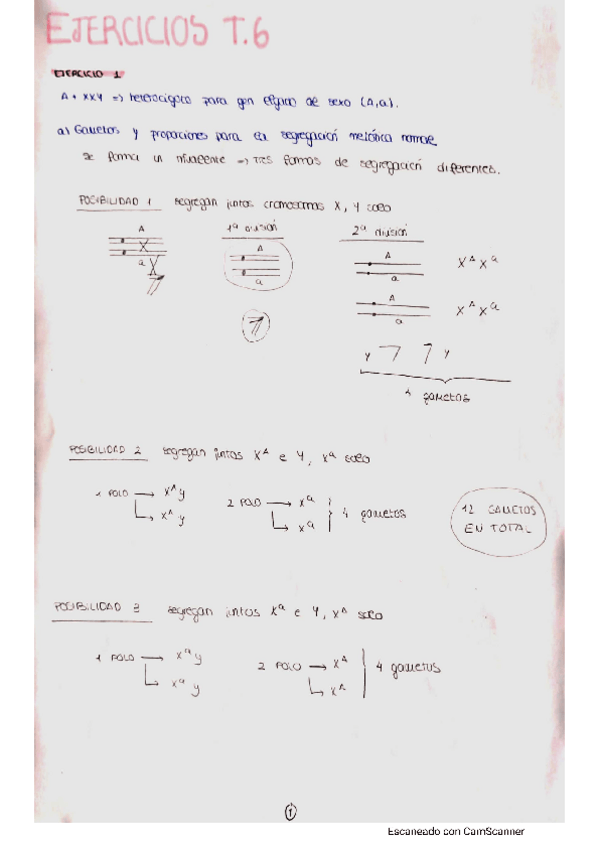 EJERCICIOS T.6
EJERCICIO 1
A + XXY => heterocigoto para gen ligado al sexo (A,a).
a) Gametos y proporciones para la segregación meiótica normal
se forma un trivalente => tres formas de segregación diferentes.
POSIBILIDAD 1 segregan juntos cromosomas X, Y solo
1ª división 2ª división
A A A
X^A X^a
a a a
A
X^A X^a
a
Y Y
4 gametos
POSIBILIDAD 2 segregan juntos X^A e Y, X^a solo
1 POLO → X^A y 2 POLO → X^a
↳ X^A y ↳ X^a
4 gametos
12 GAMETOS
EN TOTAL
POSIBILIDAD 3 segregan juntos X^a e Y, X^A solo
1 POLO → X^a y 2 POLO → X^A
↳ X^a y ↳ X^A
4 gametos
1
Escaneado con CamScanner